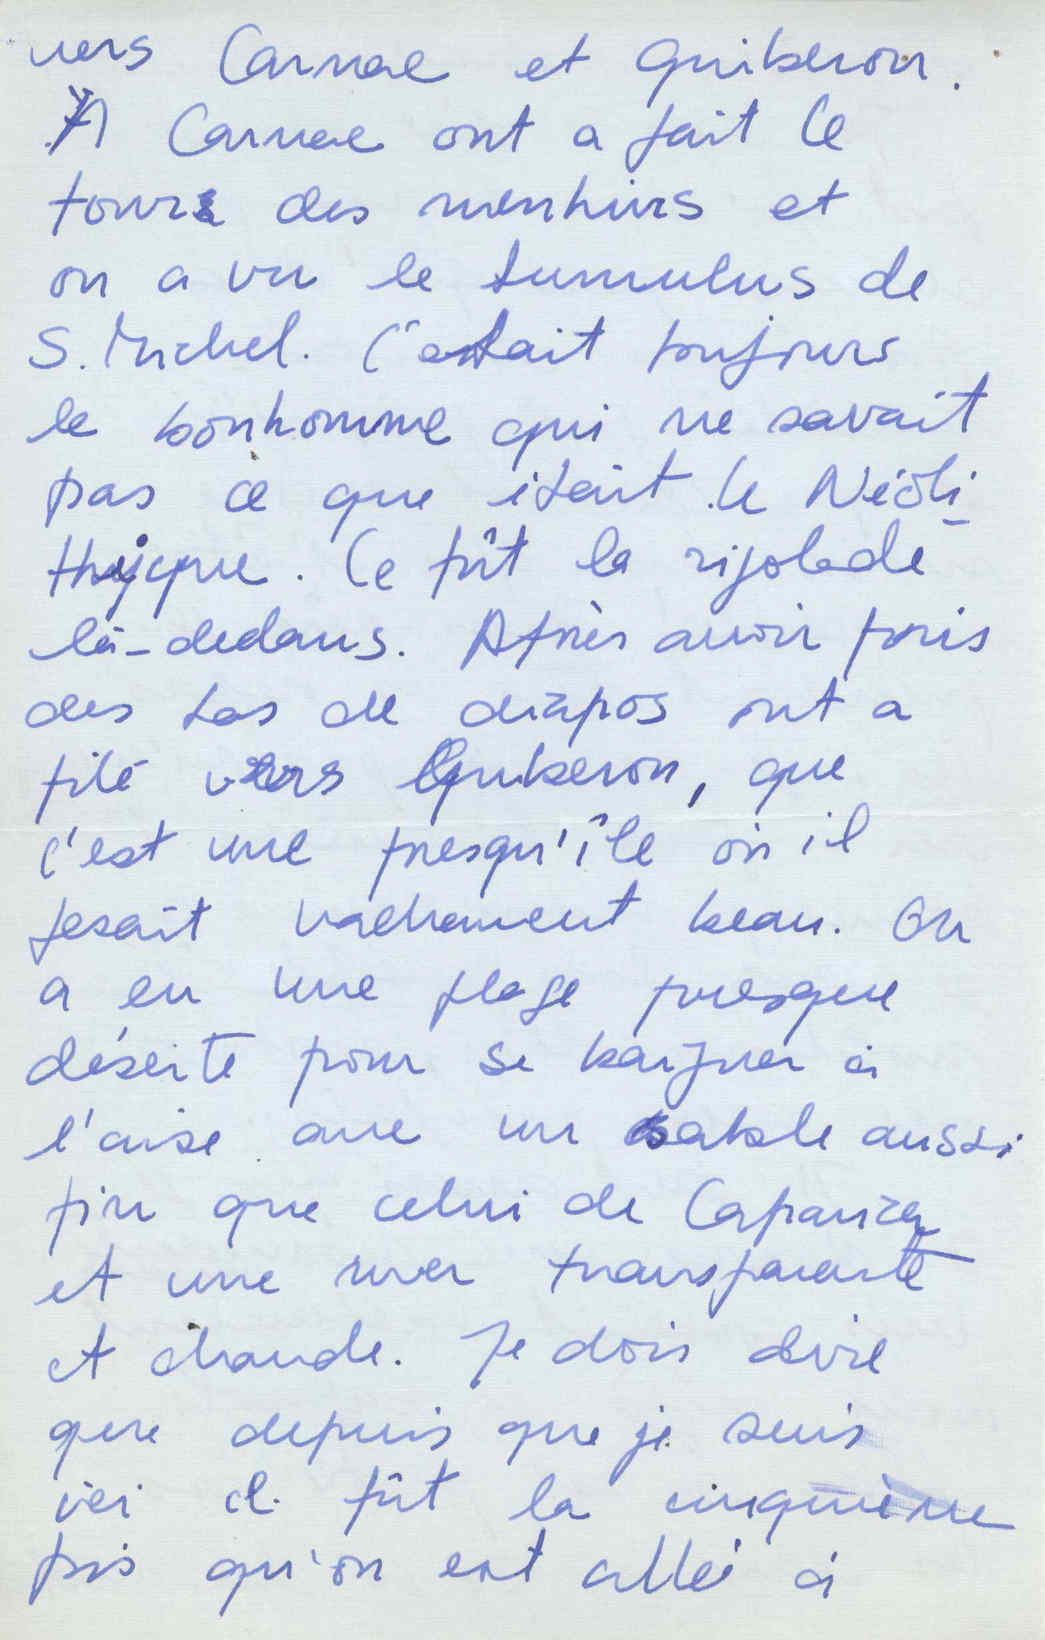 vers Carnac et Quiberon.
A Carnac ont a fait le
tour des menhirs et
on a vu le tumulus de
S. Michel. C'etait toujours
le bonhomme qui ne savait
pas ce que était le Néoli-
thique. Ce fût la rigolade
là-dedans. Après avoir pris
des tas de diapos ont a
filé vers Quiberon, que
c'est une presqu'île où il
fesait vachement beau. On
a eu une plage presque
déserte pour se baigner à
l'aise avec un sable aussi
fin que celui de Caparica
et une mer transparente
et chaude. Je dois dire
que depuis que je suis
ici ce fût la cinquième
fois qu'on est allé à